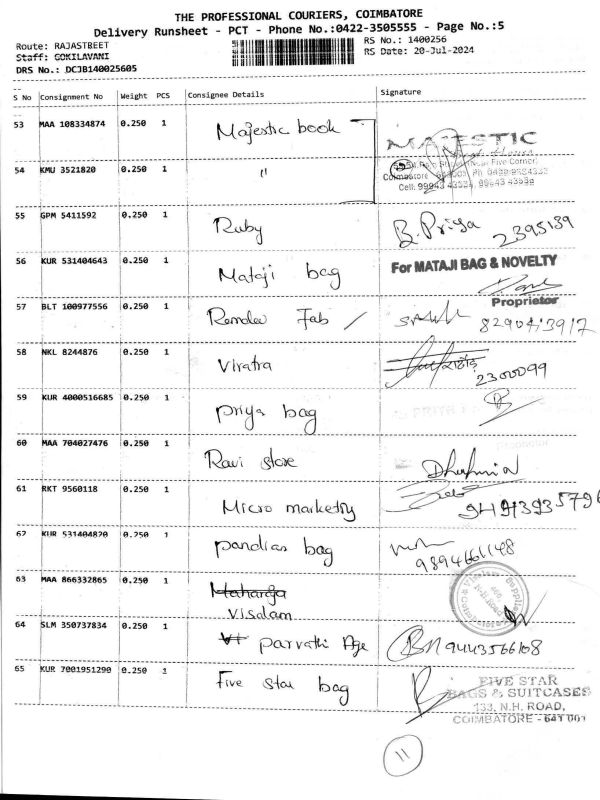 THE PROFESSIONAL COURIERS, COIMBATORE
Delivery Runsheet - PCT - Phone No.:0422-3505555 - Page No.:5
Route: RAJASTREET RS No.: 1400256
Staff: GOKILAVANI RS Date: 20-Jul-2024
DRS No.: DCJB140025605
S No Consignment No Weight PCS Consignee Details Signature
53 MAA 108334874 0.250 1 Majestic book MAJESTIC
54 KMU 3521820 0.250 1 "
Coimbatore
Cell: 99943 43534, 99943 43539
55 GPM 5411592 0.250 1 Ruby B. Priya 2395139
56 KUR 531404643 0.250 1 Mataji bag For MATAJI BAG & NOVELTY
Proprietor
57 BLT 100977556 0.250 1 Ramdev Fab 8290413917
58 NKL 8244876 0.250 1 Viratra 2300099
59 KUR 4000516685 0.250 1 priya bag
60 MAA 704027476 0.250 1 Ravi store
61 RKT 9560118 0.250 1 Micro marketing 9491393579
62 KUR 531404820 0.250 1 pandias bag 9894661148
63 MAA 866332865 0.250 1 Visalam
64 SLM 350737834 0.250 1 parvathi Age 9443566108
65 KUR 7001951290 0.250 1 Five star bag FIVE STAR
BAGS & SUITCASES
133, N.H. ROAD,
COIMBATORE - 641 001
11